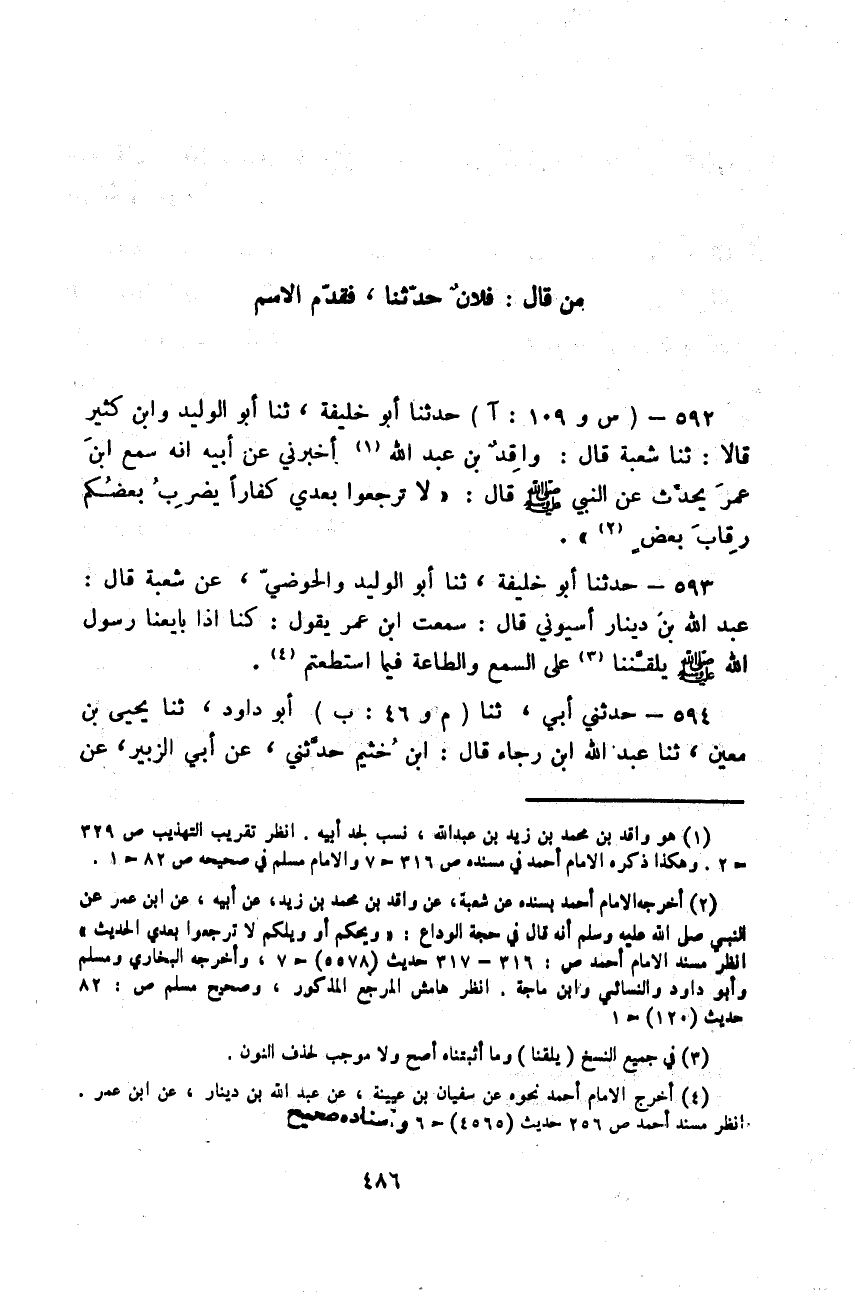 من قال : فلانٌ حدّثنا ، فقدّم الاسم
٥٩٢ – ( س و ١٠٩ : آ ) حدثنا أبو خليفة ، ثنا أبو الوليد وابن كثير
قالا : ثنا شعبة قال : واقِدٌ بن عبد الله (١) أخبرني عن أبيه انه سمع ابنَ
عمرَ يحدّث عن النبي ﷺ قال : « لا ترجعوا بعدي كفاراً يضربُ بعضُكم
رقابَ بعضٍ (٢) » .
٥٩٣ – حدثنا أبو خليفة ، ثنا أبو الوليد والحوضيّ ، عن شعبة قال :
عبد الله بنُ دينار أسيوني قال : سمعت ابن عمر يقول : كنا اذا بايعنا رسول
الله ﷺ يلقِّننا (٣) على السمع والطاعة فيما استطعتم (٤) .
٥٩٤ – حدثني أبي ، ثنا ( م و ٤٦ : ب ) أبو داود ، ثنا يحيى بن
معين ، ثنا عبد الله ابن رجاء قال : ابن خُثيم حدَّثني ، عن أبي الزبير ، عن
(١) هو واقد بن محمد بن زيد بن عبدالله ، نسب لجد أبيه . انظر تقريب التهذيب ص ٣٢٩
ـ ج ٢ . وهكذا ذكره الامام أحمد في مسنده ص ٣١٦ ج ٧ والامام مسلم في صحيحه ص ٨٢ ج ١ .
(٢) أخرجه الامام أحمد بسنده عن شعبة، عن واقد بن محمد بن زيد، عن أبيه ، عن ابن عمر عن
النبي صلى الله عليه وسلم أنه قال في حجة الوداع : « ويحكم أو ويلكم لا ترجعوا بعدي الحديث »
انظر مسند الامام أحمد ص : ٣١٦ – ٣١٧ حديث (٥٥٧٨) ج ٧ ، وأخرجه البخاري ومسلم
وأبو داود والنسائي وابن ماجة . انظر هامش المرجع المذكور ، وصحيح مسلم ص : ٨٢
حديث (١٢٠) ج ١
(٣) في جميع النسخ ( يلقنا ) وما أثبتناه أصح ولا موجب لحذف النون .
(٤) أخرج الامام أحمد نحوه عن سفيان بن عيينة ، عن عبد الله بن دينار ، عن ابن عمر .
انظر مسند أحمد ص ٢٥٦ حديث (٤٥٦٥) ج ٦ وإسناده صحيح
٤٨٦